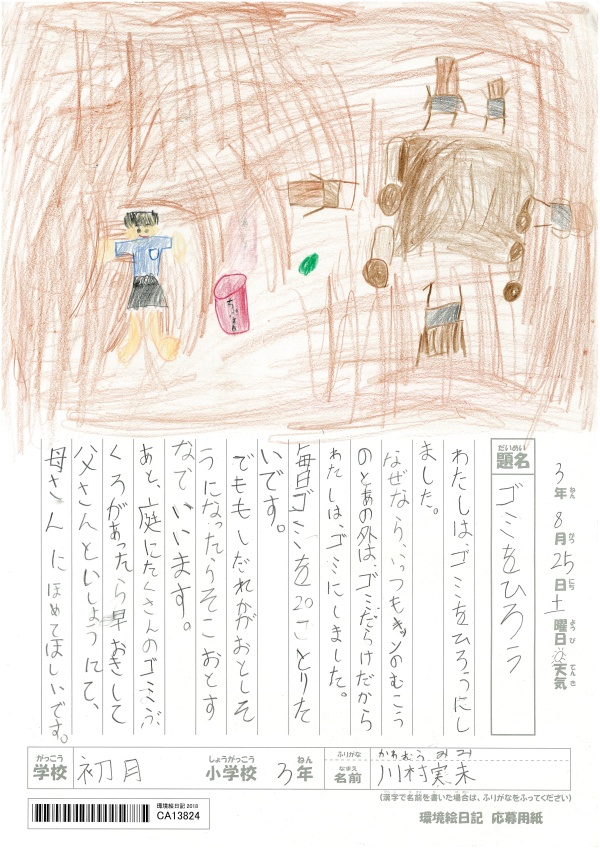 3年 8月 25日 土曜日 天気
題名 ゴミをひろう
わたしは、ゴミをひろうにし
ました。
なぜなら、いつもキッンのむこう
のとあの外は、ゴミだらけだから
わたしは、ゴミにしました。
毎日ゴミを20ことりた
いです。
でももしだれかがおとしそ
うになったらそこおとす
なでいいます。
あと、庭にたくさんのゴミぶ
くろがあったら早おきして
父さんといしょうにて、
母さんにほめてほしいです。
がっこう しょうがっこう ねん ふりがな かわむら みみ
学校 初月 小学校 3年 名前 川村実未
(漢字で名前を書いた場合は、ふりがなをふってください)
環境絵日記 2018
CA13824
環境絵日記 応募用紙